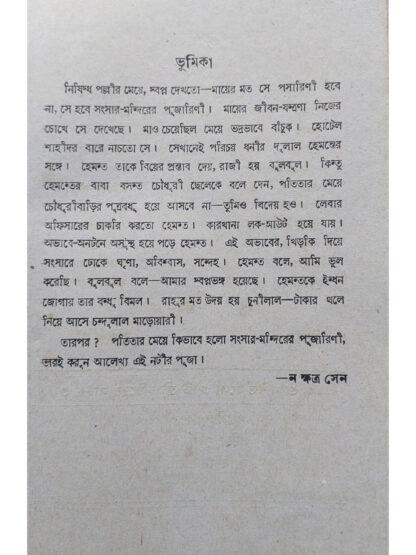 ভূমিকা
নিষিদ্ধ পল্লীর মেয়ে, স্বপ্ন দেখতো—মায়ের মত সে পসারিণী হবে
না, সে হবে সংসার-মন্দিরের পূজারিণী। মায়ের জীবন-যন্ত্রণা নিজের
চোখে সে দেখেছে। মাও চেয়েছিল মেয়ে ভদ্রভাবে বাঁচুক। হোটেল
শাহীদর বারে নাচতো সে। সেখানেই পরিচয় ধনীর দুলাল হেমন্তের
সঙ্গে। হেমন্ত তাকে বিয়ের প্রস্তাব দেয়, রাজী হয় বুলবুল। কিন্তু
হেমন্তের বাবা বসন্ত চৌধুরী ছেলেকে বলে দেন, পতিতার মেয়ে
চৌধুরীবাড়ির পুত্রবধূ হয়ে আসবে না—তুমিও বিদেয় হও। লেবার
অফিসারের চাকরি করতো হেমন্ত। কারখানা লক-আউট হয়ে যায়।
অভাবে-অনটনে অসুস্থ হয়ে পড়ে হেমন্ত। এই অভাবের, খিড়কি দিয়ে
সংসারে ঢোকে ঘৃণা, অবিশ্বাস, সন্দেহ। হেমন্ত বলে, আমি ভুল
করেছি। বুলবুল বলে—আমার স্বপ্নভঙ্গ হয়েছে। হেমন্তকে ইন্ধন
জোগায় তার বন্ধু বিমল। রাহুর মত উদয় হয় চুনীলাল—টাকার থলে
নিয়ে আসে চন্দুলাল মাড়োয়ারী।
তারপর ? পতিতার মেয়ে কিভাবে হলো সংসার-মন্দিরের পূজারিণী,
তারই করুন আলেখ্য এই নটীর পূজা।
—নক্ষত্র সেন